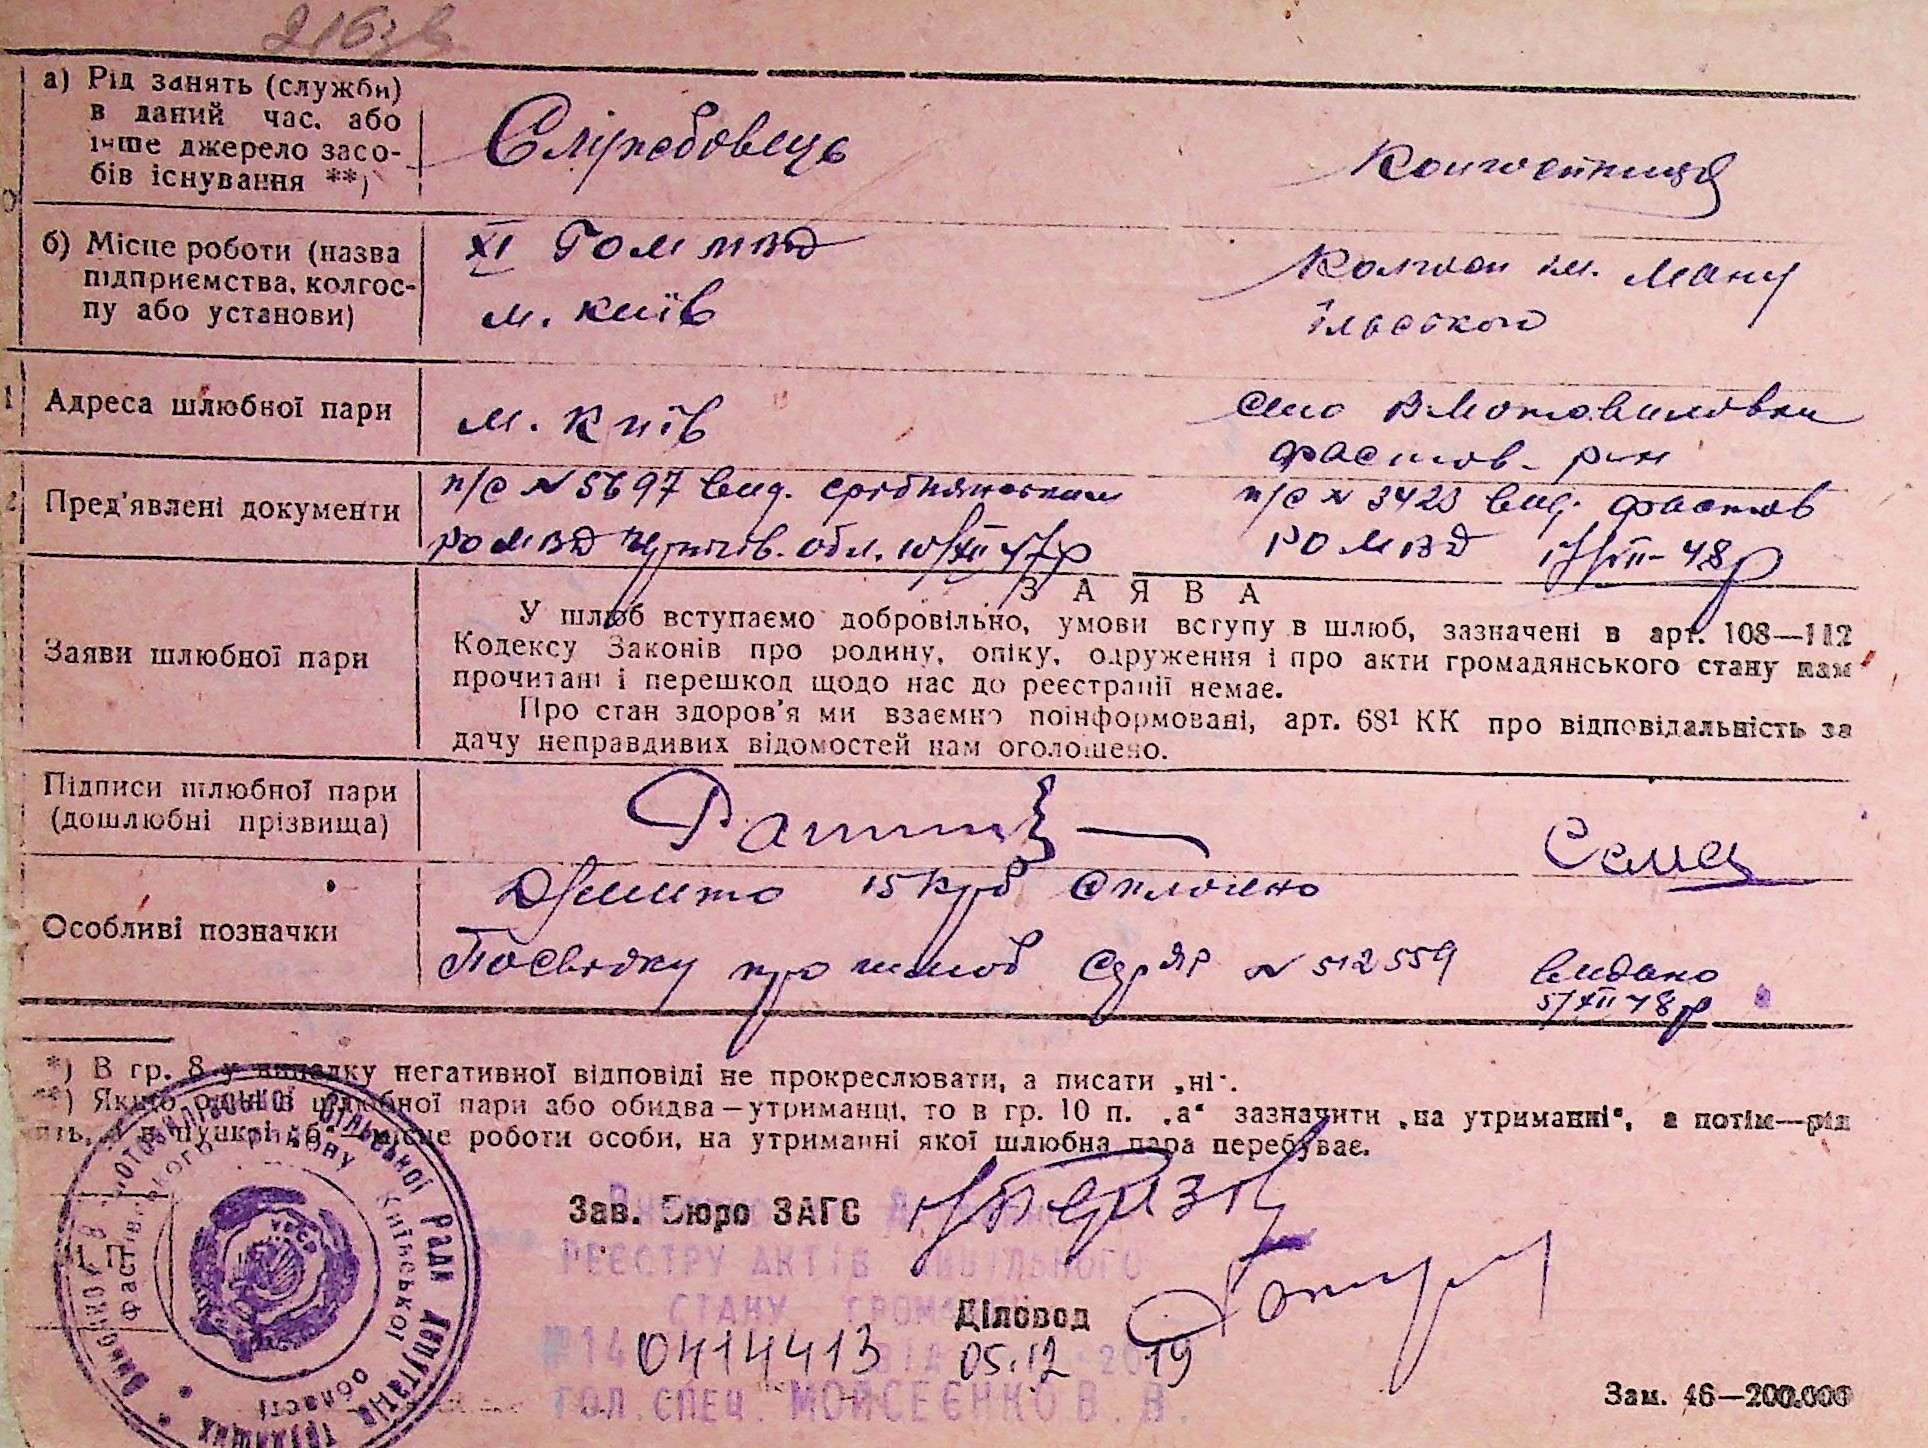 216зв
а) Рід занять (служби) в даний час, або інше джерело засобів існування **)
Службовець
Колгоспниця
б) Місце роботи (назва підприємства, колгоспу або установи)
XI ГОМ МВД
м. Київ
Колгосп ім. Ману
ільського
Адреса шлюбної пари
м. Київ
село В Мотовиловка
Фастов. р-н
Пред'явлені документи
п/с № 5697 вид. Срібнянським
РО МВД Чернігів. обл. 10/XII 47р
п/с № 3423 вид. Фастов
РО МВД 48р
Заяви шлюбної пари
ЗАЯВА
У шлюб вступаємо добровільно, умови вступу в шлюб, зазначені в арт. 108—112
Кодексу Законів про родину, опіку, одруження і про акти громадянського стану нам
прочитані і перешкод щодо нас до реєстрації немає.
Про стан здоров'я ми взаємно поінформовані, арт. 68¹ КК про відповідальність за
дачу неправдивих відомостей нам оголошено.
Підписи шлюбної пари
(дошлюбні прізвища)
Особливі позначки
15 крб сплочено
Посвідку про шлюб № 512559 видано
5/XII 48р
*) В гр. 8 у випадку негативної відповіді не прокреслювати, а писати „ні“.
**) Якщо один з шлюбної пари або обидва—утриманці, то в гр. 10 п. „а“ зазначити „на утриманні“, а потім—рід
нять, а в пункті „б“—місце роботи особи, на утриманні якої шлюбна пара перебуває.
Зав. Бюро ЗАГС
РЕЄСТРУ АКТІВ ЦИВІЛЬНОГО
СТАНУ ГРОМАДЯН
Діловод
№14 0414413 ВІД 05.12 2019
ГОЛ. СПЕЦ. МОЙСЕЄНКО В. В.
М. П.
Виконком В. Мотовилівської сільської Ради депутатів трудящих
Фастівського району Київської області
УРСР
Зам. 46—200.000